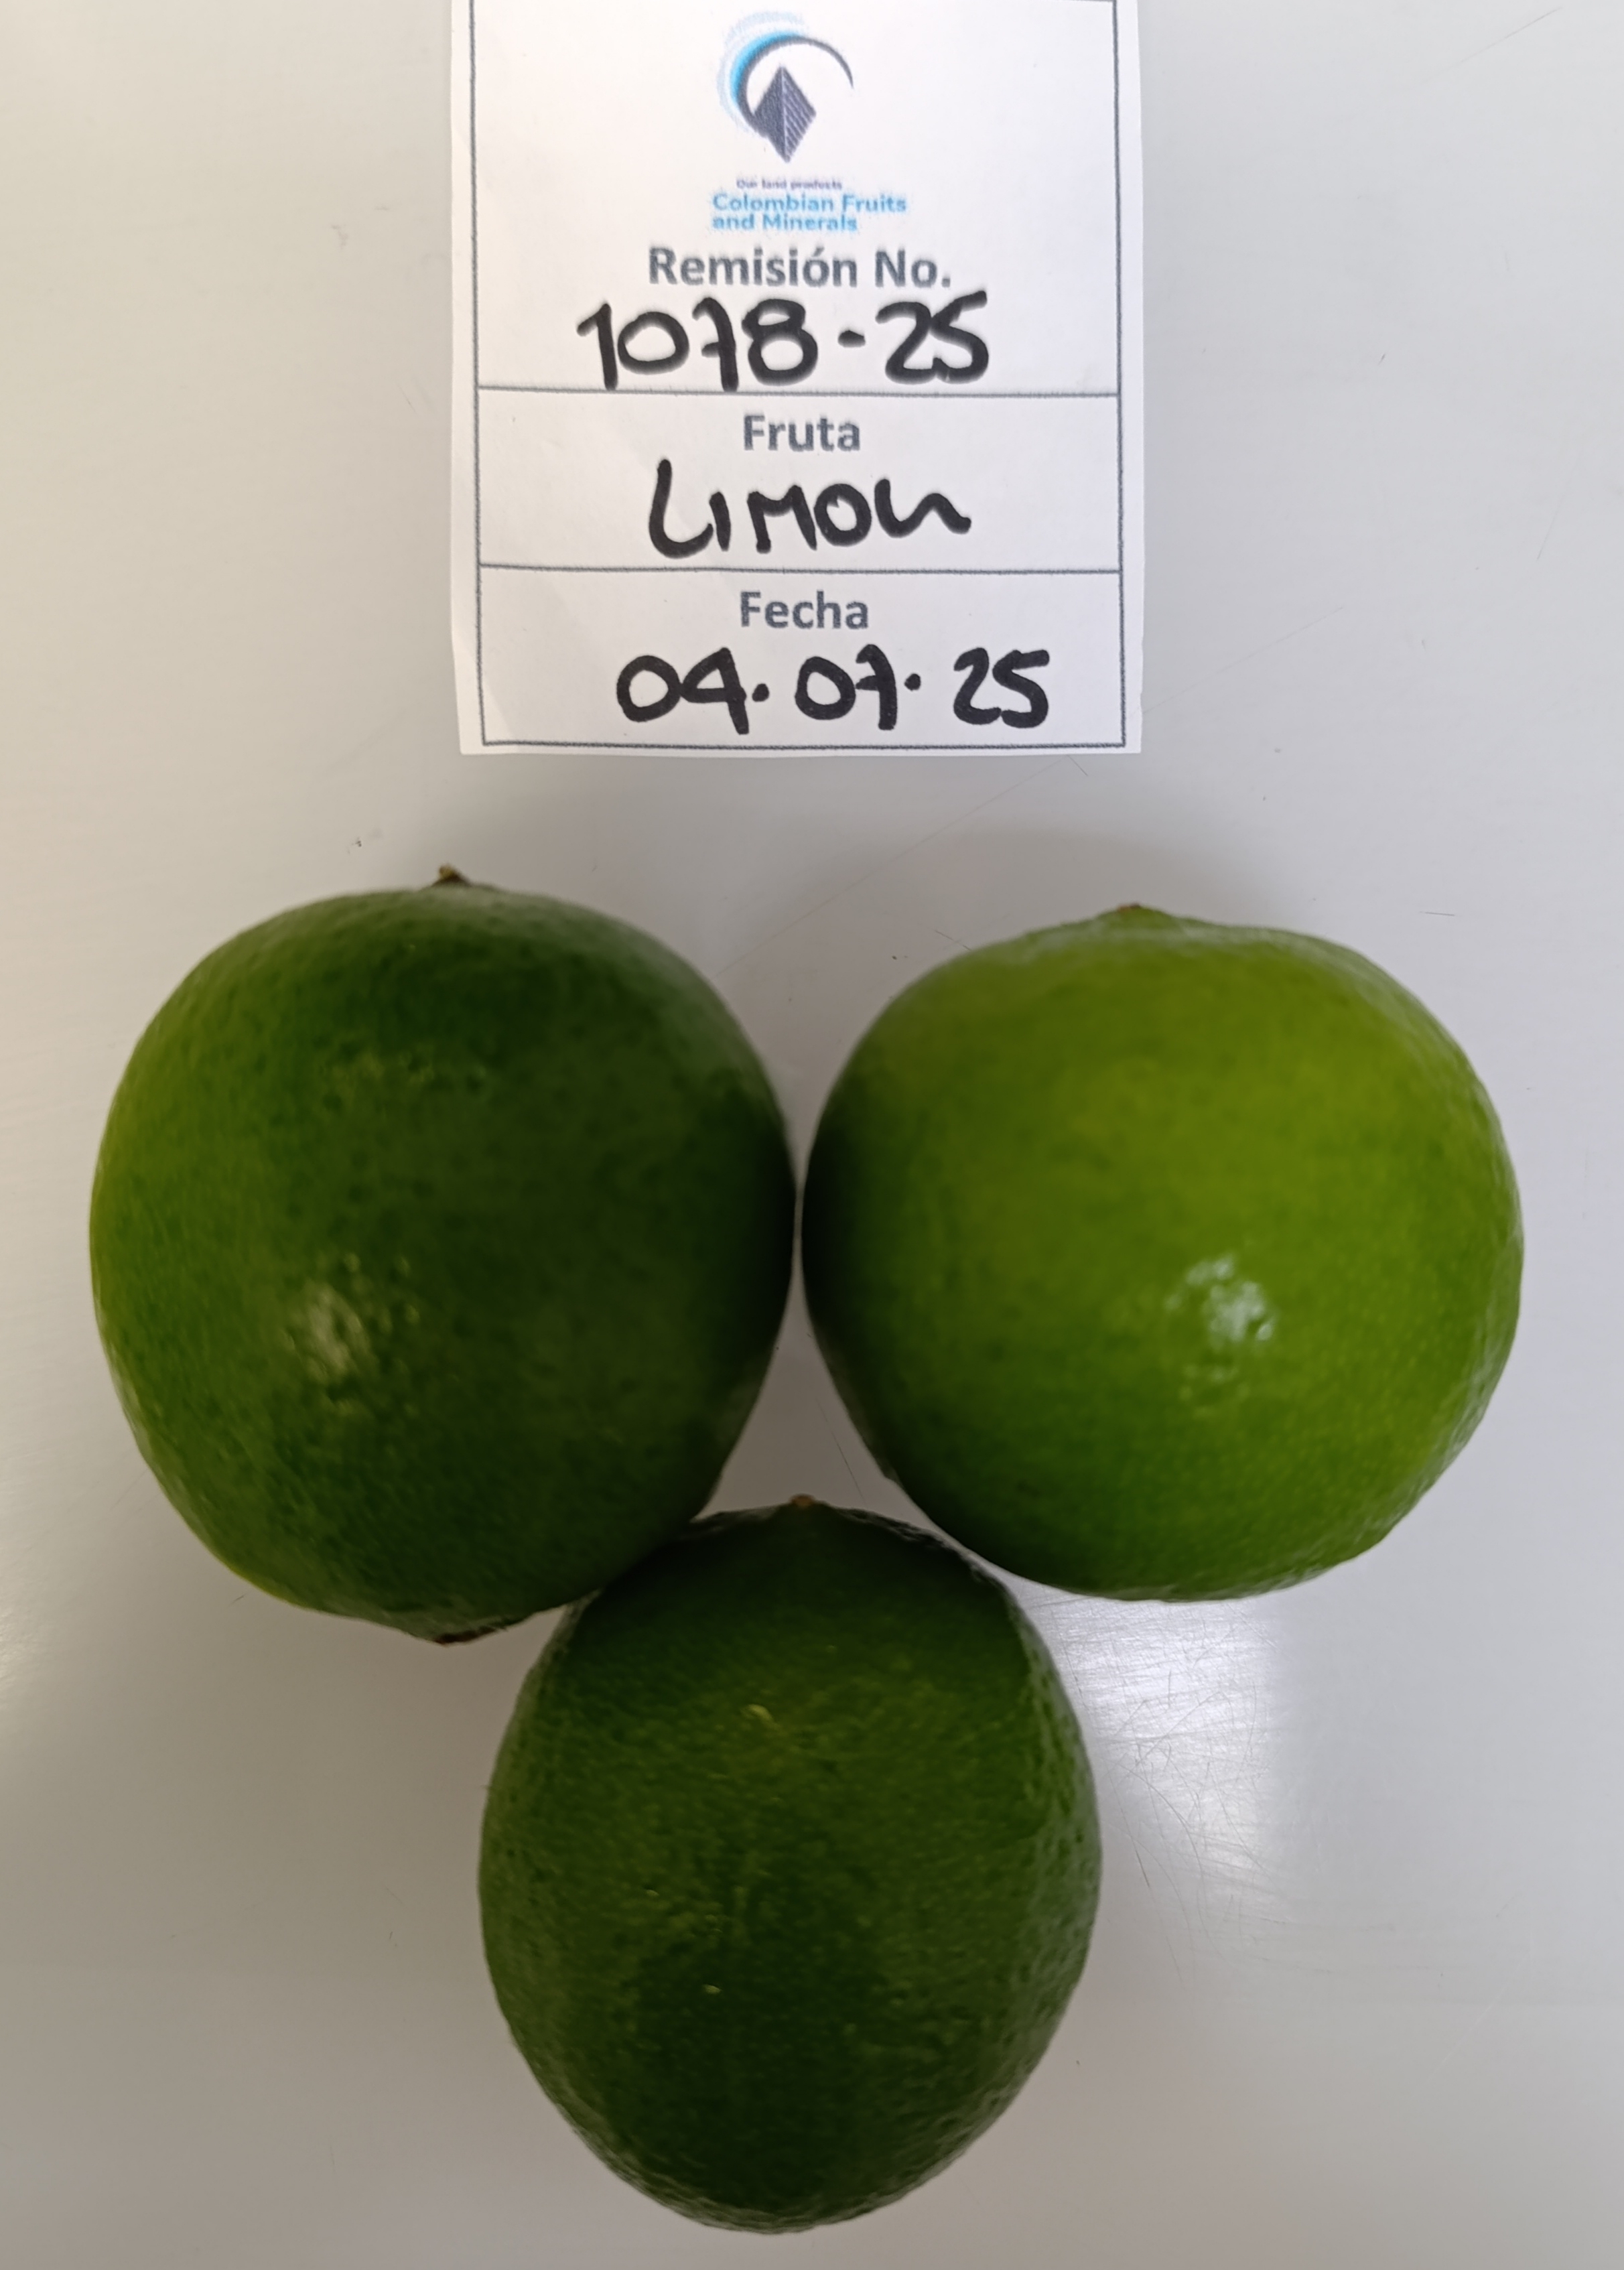 Our land products
Colombian Fruits
and Minerals
Remisión No.
1078-25
Fruta
LIMON
Fecha
04.07.25